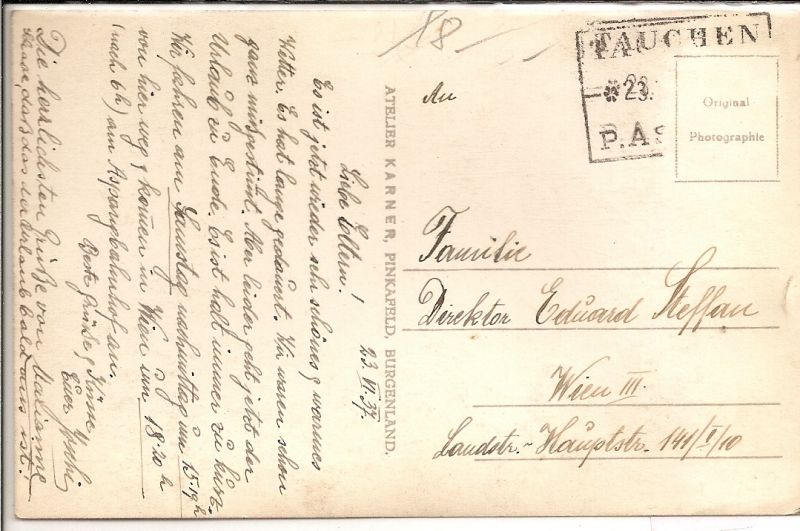 18
TAUCHEN
23.
P.AS
Original
Photographie
An
Familie
Direktor Eduard Steffan
Wien III.
Landstr.-Hauptstr. 141/I/10
ATELIER KARNER, PINKAFELD, BURGENLAND.
23. VI. 37.
Liebe Eltern!
Es ist jetzt wieder sehr schönes & warmes
Wetter. Es hat lange gedauert. Wir waren schon
ganz mißgestimmt. Aber leider geht jetzt der
Urlaub zu Ende. Es ist halt immer zu kurz.
Wir fahren am Samstag nachmittag um 15.19 h
von hier weg & kommen in Wien um 18 20 h
(nach 6 h) am Aspangbahnhof an.
Beste Grüße & Küsse
Euer
Die herzlichsten Grüße von Marianne
daß das der Urlaub bald aus ist!